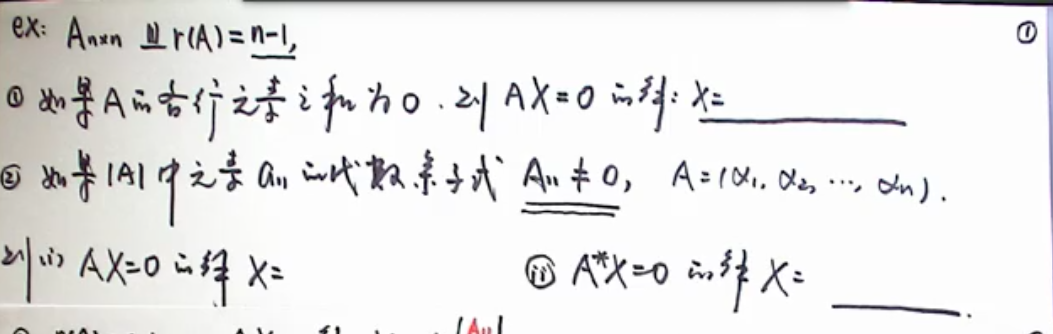 ex: Aₙₓₙ 且 r(A)=n-1, ①
① 如果A的各行元素之和为0. 则 AX=0 的解: X=
② 如果|A|中元素a₁₁的代数余子式 A₁₁≠0, A=(α₁, α₂, ⋯, αₙ).
则 (i) AX=0 的解 X= (ii) A*X=0 的解 X= .